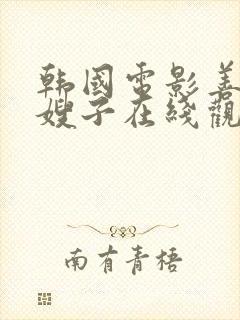 韩国电影善
嫂子在线觀
南有青梧